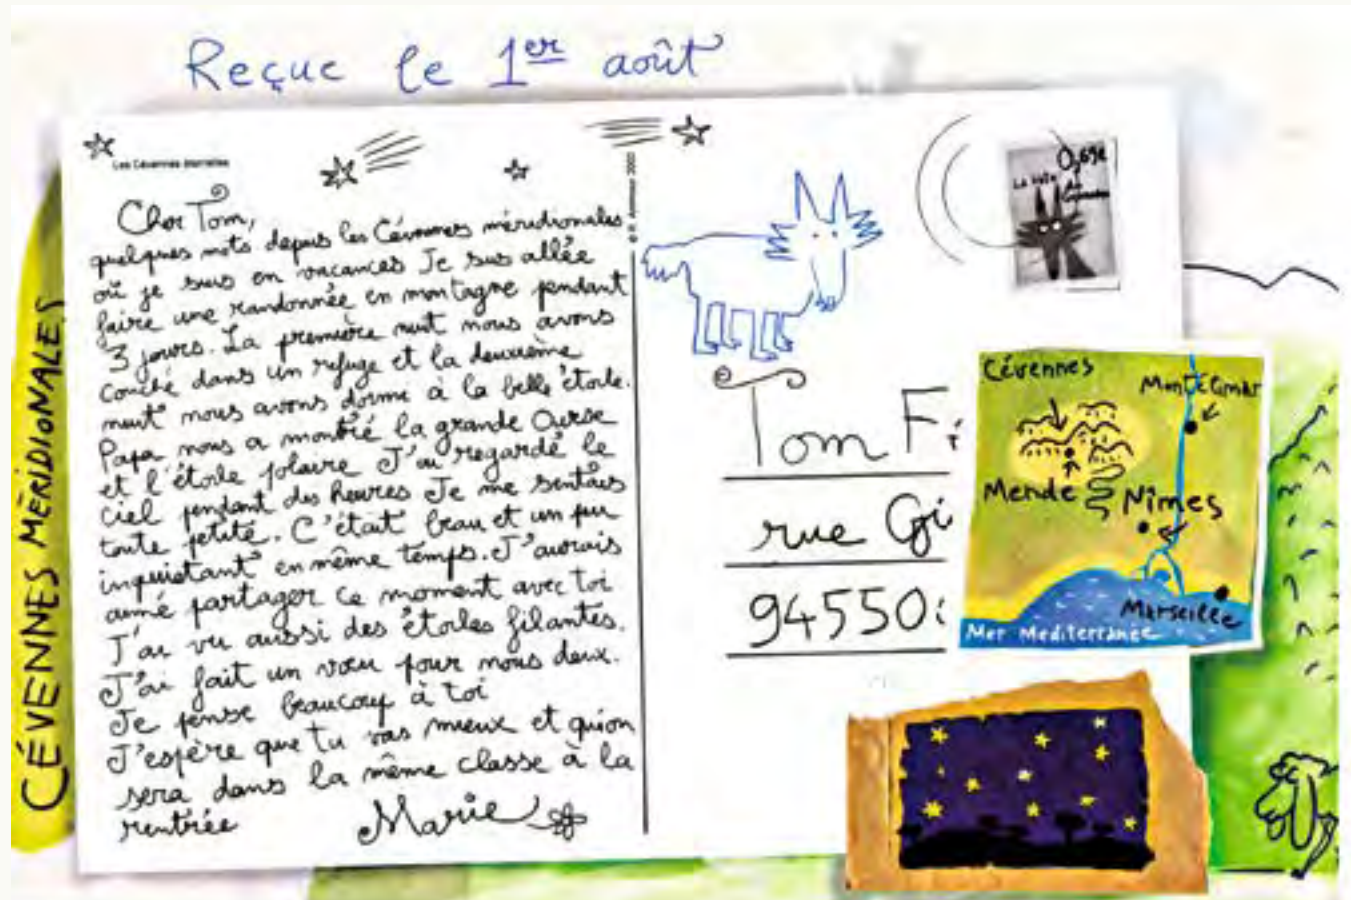 Reçue le 1er août
CÉVENNES MÉRIDIONALES
Cher Tom,
quelques mots depuis les Cévennes méridionales
où je suis en vacances Je suis allée
faire une randonnée en montagne pendant
3 jours. La première nuit nous avons
couché dans un refuge et la deuxième
nuit nous avons dormi à la belle étoile.
Papa nous a montré la grande Ourse
et l'étoile polaire J'ai regardé le
ciel pendant des heures Je me sentais
toute petite. C'était beau et un peu
inquietant en même temps. J'aurais
aimé partager ce moment avec toi
J'ai vu aussi des étoiles filantes.
J'ai fait un vœu pour nous deux.
Je pense beaucoup à toi
J'espère que tu vas mieux et qu'on
sera dans la même classe à la
rentrée
Marie
0,69€
Tom F
rue Gi
94550
Cévennes
Montélimar
Mende
Nîmes
Marseille
Mer Mediterranée